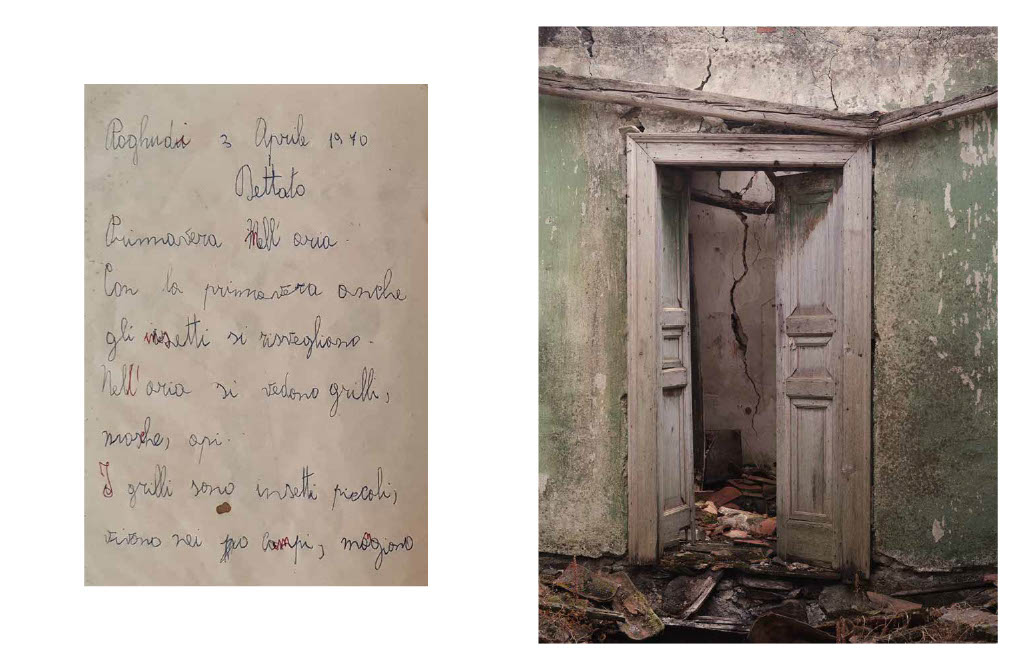 Roghudi 3 Aprile 1970
Dettato
Primavera Nell'aria.
Con la primavera anche
gli insetti si risvegliano.
Nell'aria si vedono grilli,
mosche, api.
I grilli sono insetti piccoli,
vivono nei campi, mogiano